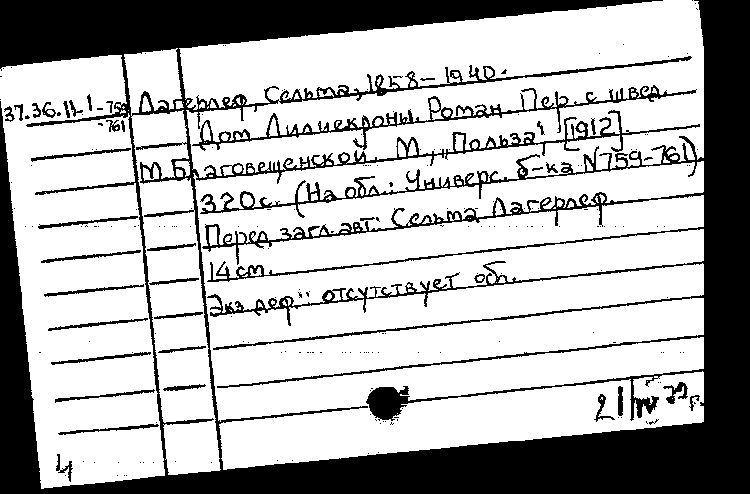 37.36.II-1-759 Лагерлеф, Сельма, 1858-1940.
-761 Дом Лилиекроны. Роман. Пер. с швед.
М Благовещенской. М, „Польза", [1912].
320с. (На обл.: Универс. б-ка N759-761).
Перед загл. авт.: Сельма Лагерлеф.
14 cm.
Экз. деф.: отсутствует обл.
21/IV 79 г.
4